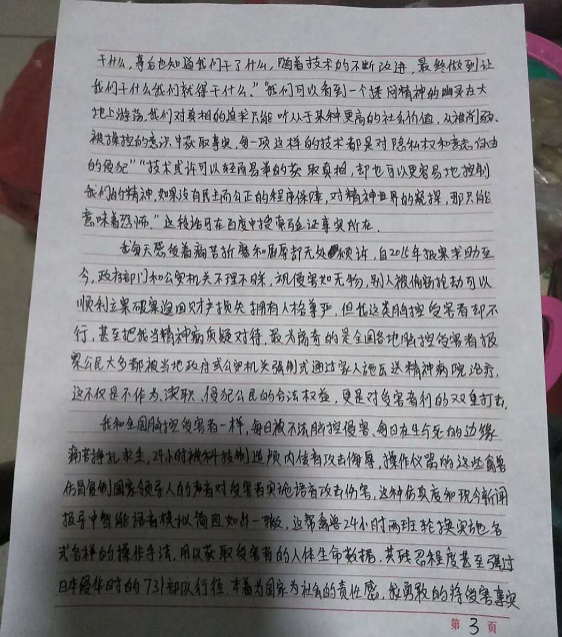 干什么，旁白也知道我们干了什么，随着技术的不断改进，最终做到让
我们干什么我们就得干什么。”“我们可以看到一个拷问精神的幽灵在大
地上游荡，我们对真相的追求只能听从于某种更高的社会价值，从被闲聊、
被操控的意识中获取事实，每一项这样的技术都是对隐私权和意志自由
的侵犯”“技术或许可以轻而易举的获取真相，却也可以更容易地控制
我们的精神，如果没有民主而公正的程序保障，对精神世界的窥探，那只能
意味着恐怖。”这段话可在百度中搜索验证事实所在。
我每天感受着痛苦折磨和屈辱却无处倾诉，自2015年报案求助至
今，政府部门和公安机关不理不睬，视侵害如无物，别人被偷新抢劫可以
顺利立案破案追回财产损失拥有人格尊严，但我这类脑控受害者却不
行，甚至把我当精神病质疑对待，最为离奇的是全国各地脑控受害者报
案公民大多都被当地政府或公安机关强制或通过家人施压送精神病院治疗，
这不仅是不作为、渎职、侵犯公民的合法权益，更是对受害者们的双重打击。
我和全国脑控受害者一样，每日被不法脑控侵害、每日在生与死的边缘
痛苦挣扎求生，24小时被科技制造颅内语音攻击侮辱，操作仪器的这些禽兽
仿冒复制国家领导人的声音对受害者实施语音攻击伤害，这种仿真度和现今新闻
报导中智能语音模拟简直如出一辙，这帮禽兽24小时两班轮换实施各
式各样的操作手法，用以获取受害者的人体生命数据，其残忍程度甚至强过
日本侵华时的731部队行径，本着为国家为社会的责任感，我勇敢的将侵害事实
第 3 页